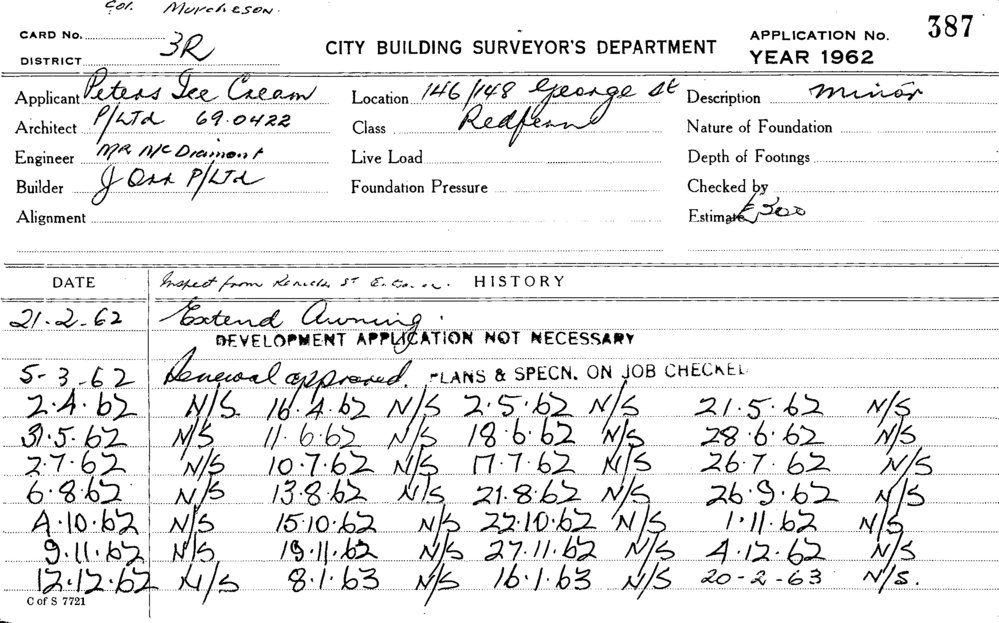 Col. Murcheson.
CARD No. 3R
DISTRICT
CITY BUILDING SURVEYOR'S DEPARTMENT
APPLICATION No. 387
YEAR 1962
Applicant Peters Ice Cream Location 146/148 George St Description minor
Architect P/LTd 69.0422 Class Redfern Nature of Foundation
Engineer MR McDiarmont Live Load Depth of Footings
Builder J Orr P/LTd Foundation Pressure Checked by
Alignment Estimate £300
DATE Inspect from St HISTORY
21.2.62 Extend Awning.
DEVELOPMENT APPLICATION NOT NECESSARY
5-3.62 Renewal approved. PLANS & SPECN. ON JOB CHECKED
2.4.62 N/S. 16.4.62 N/S 2.5.62 N/S 21.5.62 N/S
31.5.62 N/S 11.6.62 N/S 18.6.62 N/S 28.6.62 N/S
2.7.62 N/S 10.7.62 N/S 17.7.62 N/S 26.7.62 N/S
6.8.62 N/S 13.8.62 N/S 21.8.62 N/S 26.9.62 N/S
4.10.62 N/S 15.10.62 N/S 22.10.62 N/S 1.11.62 N/S
9.11.62 N/S 19.11.62 N/S 27.11.62 N/S 4.12.62 N/S
12.12.62 N/S 8.1.63 N/S 16.1.63 N/S 20-2-63 N/S.
C of S 7721